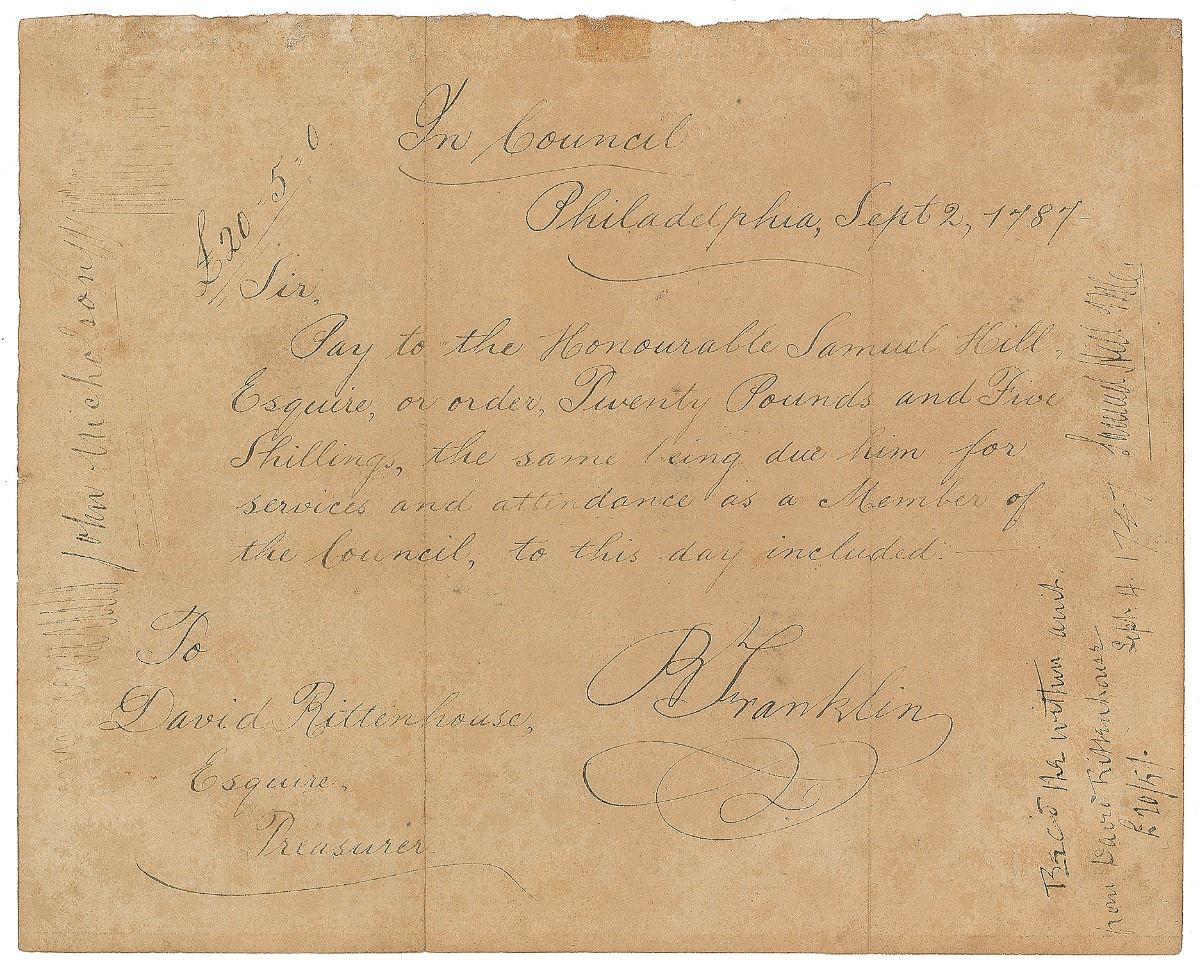 In Council
Philadelphia, Sept 2, 1787
£20-5-0
Sir,
Pay to the Honourable Samuel Hill,
Esquire, or order, Twenty Pounds and Five
Shillings, the same being due him for
services and attendance as a Member of
the Council, to this day included.
To
David Rittenhouse,
Esquire,
Treasurer
B Franklin
John Nicholson
the within
from David Rittenhouse
Sept. 4. 1787
£20/5/.
Samuel Hill